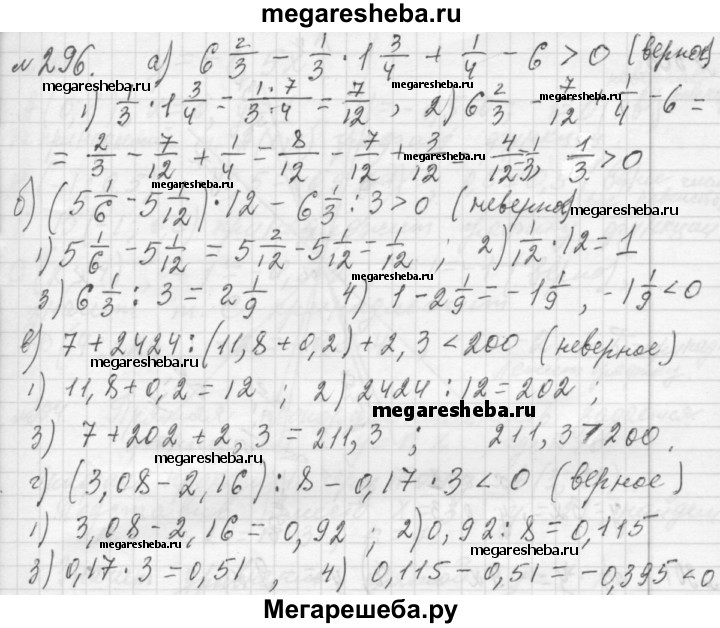 megaresheba.ru
№ 296. а) 6 2/3 − 1/3 · 1 3/4 + 1/4 − 6 > 0 (верное)
megaresheba.ru
1) 1/3 · 1 3/4 = 1·7/3·4 = 7/12 , 2) 6 2/3 − 7/12 + 1/4 − 6 =
megaresheba.ru
= 2/3 − 7/12 + 1/4 = 8/12 − 7/12 + 3/12 = 4/12 = 1/3, 1/3 > 0
megaresheba.ru
б) (5 1/6 − 5 1/12) · 12 − 6 1/3 : 3 > 0 (неверно)
megaresheba.ru
1) 5 1/6 − 5 1/12 = 5 2/12 − 5 1/12 = 1/12 ; 2) 1/12 · 12 = 1
megaresheba.ru
3) 6 1/3 : 3 = 2 1/9 4) 1 − 2 1/9 = −1 1/9 , −1 1/9 < 0
megaresheba.ru
в) 7 + 2424 : (11,8 + 0,2) + 2,3 < 200 (неверное)
megaresheba.ru
1) 11,8 + 0,2 = 12 ; 2) 2424 : 12 = 202 ;
megaresheba.ru
3) 7 + 202 + 2,3 = 211,3 ; 211,3 > 200.
megaresheba.ru
г) (3,08 − 2,16) : 8 − 0,17 · 3 < 0 (верное)
megaresheba.ru
1) 3,08 − 2,16 = 0,92 ; 2) 0,92 : 8 = 0,115
megaresheba.ru
megaresheba.ru
3) 0,17 · 3 = 0,51 , 4) 0,115 − 0,51 = −0,395 < 0
Мегарешеба.ру